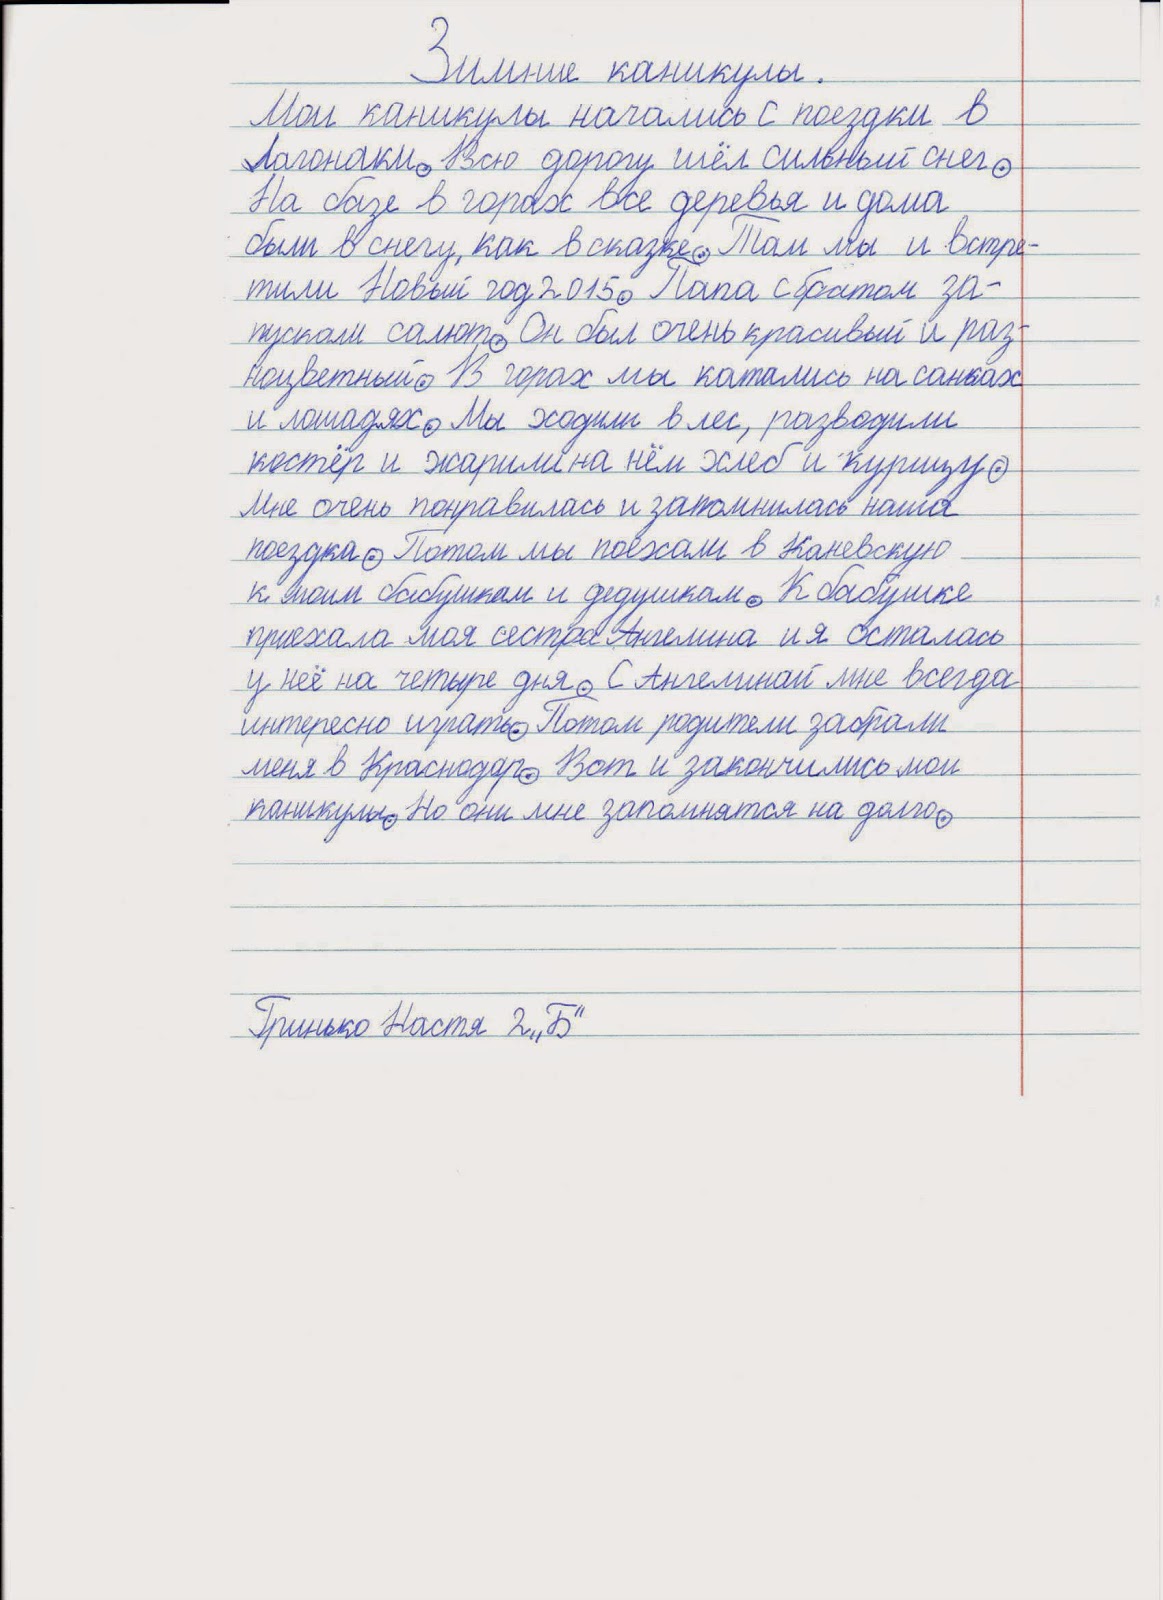 Зимние каникулы.
Мои каникулы начались с поездки в
Лагонаки. Всю дорогу шёл сильный снег.
На базе в горах все деревья и дома
были в снегу, как в сказке. Там мы и встре-
тили Новый год 2015. Папа с братом за-
пускали салют. Он был очень красивый и раз-
ноцветный. В горах мы катались на санках
и лошадях. Мы ходили в лес, разводили
костёр и жарили на нём хлеб и курицу.
Мне очень понравилась и запомнилась наша
поездка. Потом мы поехали в Каневскую
к моим бабушкам и дедушкам. К бабушке
приехала моя сестра Ангелина и я осталась
у неё на четыре дня. С Ангелиной мне всегда
интересно играть. Потом родители забрали
меня в Краснодар. Вот и закончились мои
каникулы. Но они мне запомнятся на долго.
Гринько Настя 2 „Б“